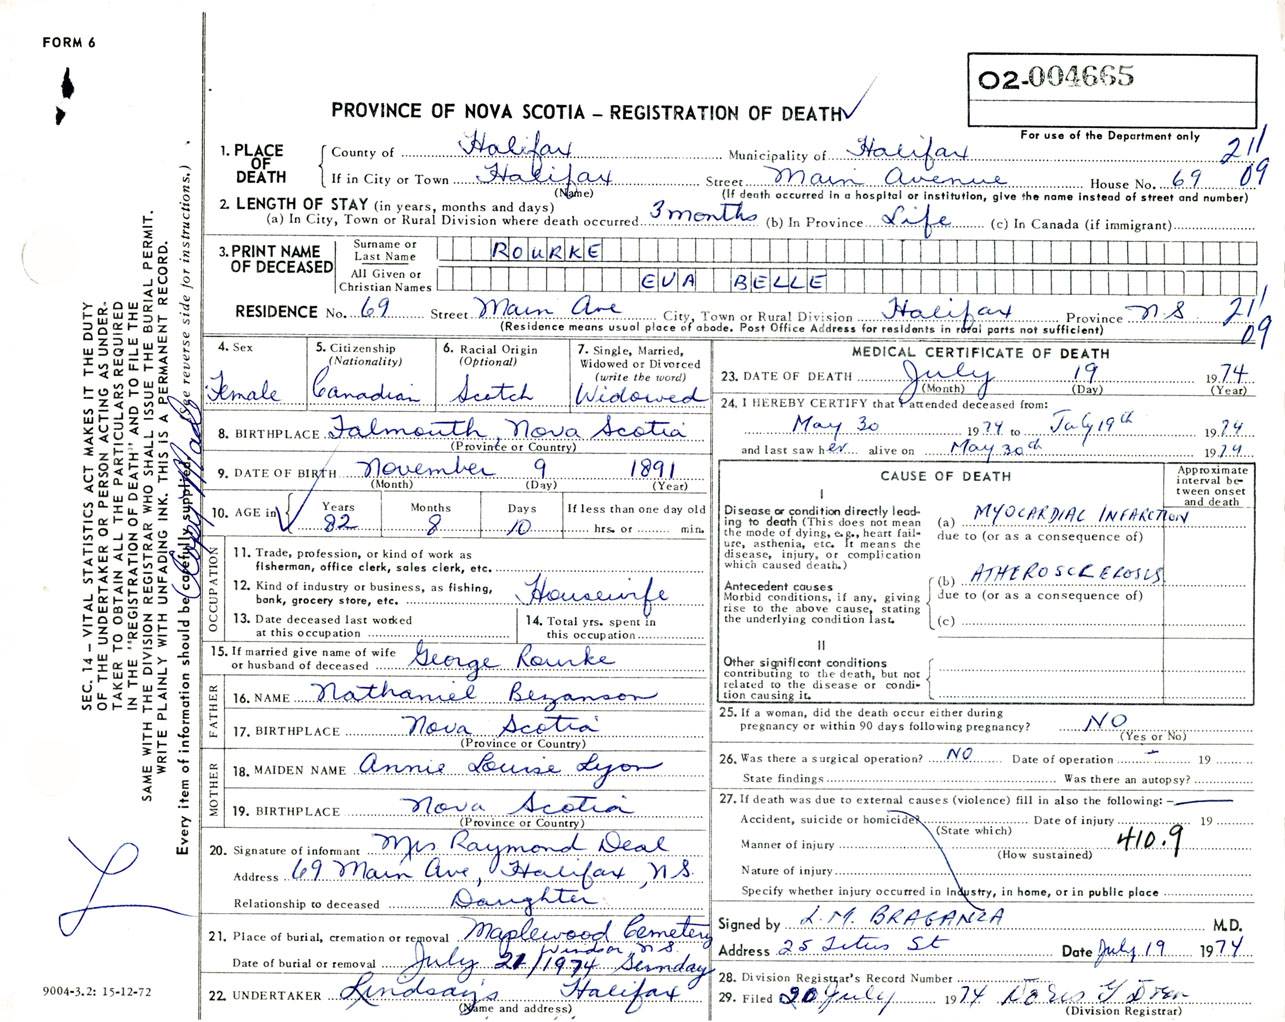 FORM 6
02-004665
PROVINCE OF NOVA SCOTIA – REGISTRATION OF DEATH
For use of the Department only
1. PLACE OF DEATH
County of Halifax Municipality of Halifax 211
If in City or Town Halifax Street Main Avenue House No. 69 09
(Name) (If death occurred in a hospital or institution, give the name instead of street and number)
2. LENGTH OF STAY (in years, months and days)
(a) In City, Town or Rural Division where death occurred 3 months (b) In Province Life (c) In Canada (if immigrant)
3. PRINT NAME OF DECEASED
Surname or Last Name ROURKE
All Given or Christian Names EVA BELLE
RESIDENCE No. 69 Street Main Ave City, Town or Rural Division Halifax Province N.S. 211
(Residence means usual place of abode. Post Office Address for residents in rural parts not sufficient) 09
4. Sex
Female
5. Citizenship (Nationality)
Canadian
6. Racial Origin (Optional)
Scotch
7. Single, Married, Widowed or Divorced (write the word)
Widowed
8. BIRTHPLACE Falmouth, Nova Scotia
(Province or Country)
9. DATE OF BIRTH November 9 1891
(Month) (Day) (Year)
10. AGE in Years Months Days If less than one day old
82 8 10 hrs. or min.
OCCUPATION
11. Trade, profession, or kind of work as fisherman, office clerk, sales clerk, etc.
12. Kind of industry or business, as fishing, bank, grocery store, etc. Housewife
13. Date deceased last worked at this occupation
14. Total yrs. spent in this occupation
15. If married give name of wife or husband of deceased George Rourke
FATHER
16. NAME Nathaniel Bezanson
17. BIRTHPLACE Nova Scotia
(Province or Country)
MOTHER
18. MAIDEN NAME Annie Louise Lyon
19. BIRTHPLACE Nova Scotia
(Province or Country)
20. Signature of informant Mrs Raymond Deal
Address 69 Main Ave, Halifax, N.S.
Relationship to deceased Daughter
21. Place of burial, cremation or removal Maplewood Cemetery
Windsor N.S.
Date of burial or removal July 21/1974 Sunday
22. UNDERTAKER Lindsay's Halifax
(Name and address)
MEDICAL CERTIFICATE OF DEATH
23. DATE OF DEATH July 19 1974
(Month) (Day) (Year)
24. I HEREBY CERTIFY that I attended deceased from:
May 30 1974 to July 19th 1974
and last saw her alive on May 30th 1974
CAUSE OF DEATH
Approximate interval between onset and death
I
Disease or condition directly leading to death (This does not mean the mode of dying, e.g., heart failure, asthenia, etc. It means the disease, injury, or complication which caused death.)
(a) MYOCARDIAL INFARCTION
due to (or as a consequence of)
Antecedent causes
Morbid conditions, if any, giving rise to the above cause, stating the underlying condition last.
(b) ATHEROSCLEROSIS
due to (or as a consequence of)
(c)
II
Other significant conditions contributing to the death, but not related to the disease or condition causing it.
25. If a woman, did the death occur either during pregnancy or within 90 days following pregnancy? NO
(Yes or No)
26. Was there a surgical operation? NO Date of operation – 19
State findings Was there an autopsy?
27. If death was due to external causes (violence) fill in also the following: –
Accident, suicide or homicide? Date of injury 19
(State which)
Manner of injury 410.9
(How sustained)
Nature of injury
Specify whether injury occurred in Industry, in home, or in public place
Signed by L.M. BRAGANZA M.D.
Address 25 Titus St Date July 19 1974
28. Division Registrar's Record Number
29. Filed 20 July 1974 Doris
(Division Registrar)
SEC. 14 – VITAL STATISTICS ACT MAKES IT THE DUTY
OF THE UNDERTAKER OR PERSON ACTING AS UNDER-
TAKER TO OBTAIN ALL THE PARTICULARS REQUIRED
IN THE "REGISTRATION OF DEATH" AND TO FILE THE
SAME WITH THE DIVISION REGISTRAR WHO SHALL ISSUE THE BURIAL PERMIT.
WRITE PLAINLY WITH UNFADING INK. THIS IS A PERMANENT RECORD.
Every item of information should be carefully supplied. (See reverse side for instructions.)
Copy Made
9004-3.2: 15-12-72